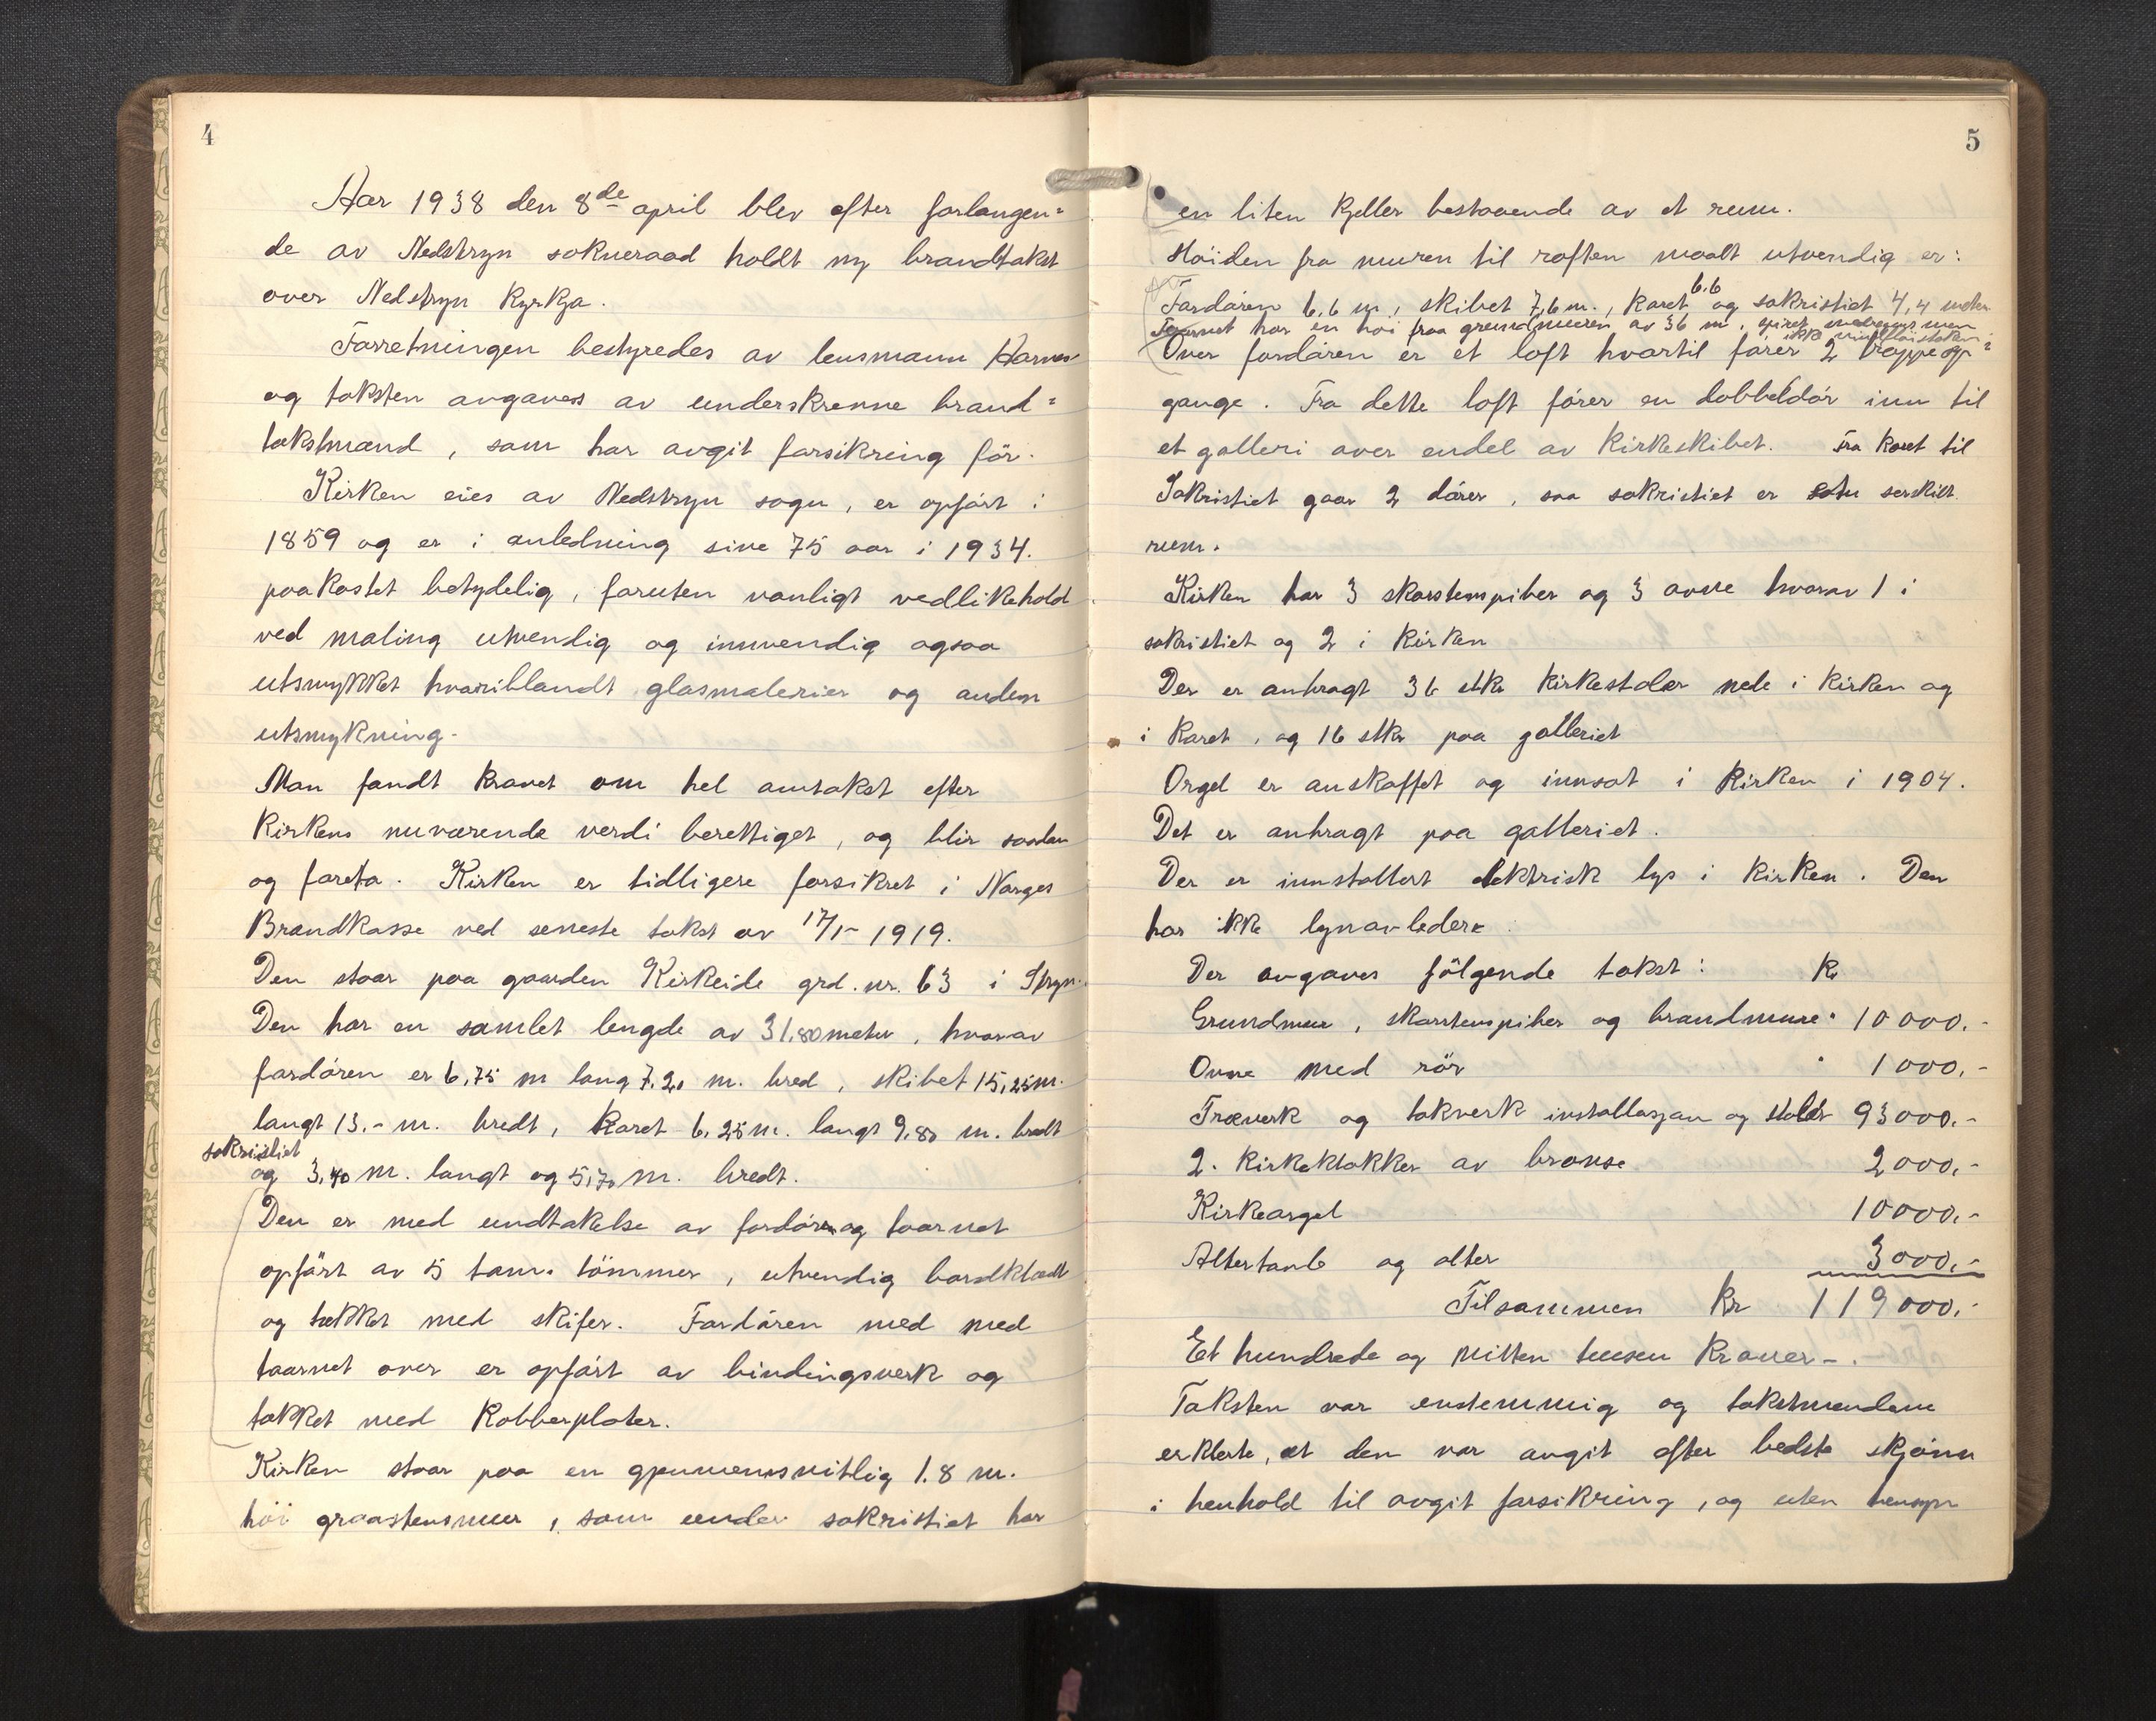 4
Aar 1938 den 8de april blev efter forlangen=
de av Nedstryn sokneraad holdt ny brandtakst
over Nedstryn Kyrkja.
Forretningen bestyredes av lensmann
og taksten avgaves av underskrevne brand=
takstmænd, som har avgit forsikring för.
Kirken eies av Nedstryn sogn, er opfört i
1859 og er i anledning sine 75 aar i 1934.
paakostet betydelig, foruten vanligt vedlikehold
ved maling utvendig og innvendig ogsaa
utsmykket hvoriblandt glasmalerier og anden
utsmykning.
Man fandt kravet om hel omtakst efter
Kirkens nuværende verdi berettiget, og blir saadan
og foreta. Kirken er tidligere forsikret i Norges
Brandkasse ved seneste takst av 17/5 1919.
Den staar paa gaarden Kirkeide grd. nr. 63 i Stryn.
Den har en samlet lengde av 31,80 meter, hvorav
fordören er 6,75 m lang 7,20 m. bred, skibet 15,25 m.
langt 13.- m. bredt, Koret 6,25 m. langt 9,80 m. bredt
sakristiet
og 3,40 m. langt og 5,70 m. bredt.
Den er med undtakelse av fordören og taarnet
opfört av 5 tom. tömmer, utvendig bordklædt
og tækket med skifer. Fordören med med
taarnet over er opfört av bindingsverk og
tækket med Kobberplater.
Kirken staar paa en gjennemsnitlig 1.8 m.
höi graastensmur, som under sakristiet har
5
en liten Kjeller bestaaende av et rum.
Höiden fra muren til roften maalt utvendig er:
6.6
Fordören 6,6 m, skibet 7,6 m., Koret og sakristiet 4,4 meter
Taarnet har en höi fraa grundmuren av 36 m, spiret
Over fordören er et loft hvortil förer 2 trappeop=
gange. Fra dette loft förer en dobbeldör inn til
et galleri over endel av Kirkeskibet. Fra Koret til
Sakristiet gaar 2 dörer, saa sakristiet er serskilt
rum.
Kirken har 3 skorstenspiber og 3 ovne hvorav 1 i
sakristiet og 2 i Kirken
Der er anbragt 36 stk Kirkestoler nede i Kirken og
i Koret, og 16 stk paa galleriet
Orgel er anskaffet og innsat i Kirken i 1904.
Det er anbragt paa galleriet.
Der er innstallert elektrisk lys i Kirken. Den
har ikke lynavledere.
Der avgaves fölgende takst: Kr
Grundmur, skorstenspiber og brandmure " 10 000.-
Ovne med rör " 1 000.-
Træverk og takverk installasjon og stoler 93 000.-
2. Kirkeklokker av bronse 2 000.-
Kirkeorgel 10 000.-
Altertavle og alter 3 000.-
Tilsammen Kr 119 000.-
Et hundrede og Nitten tusen Kroner-.
Taksten var enstemmig og takstmendene
erklerte, at den var avgit efter bedste skjönn
i henhold til avgit forsikring, og uten hensyn